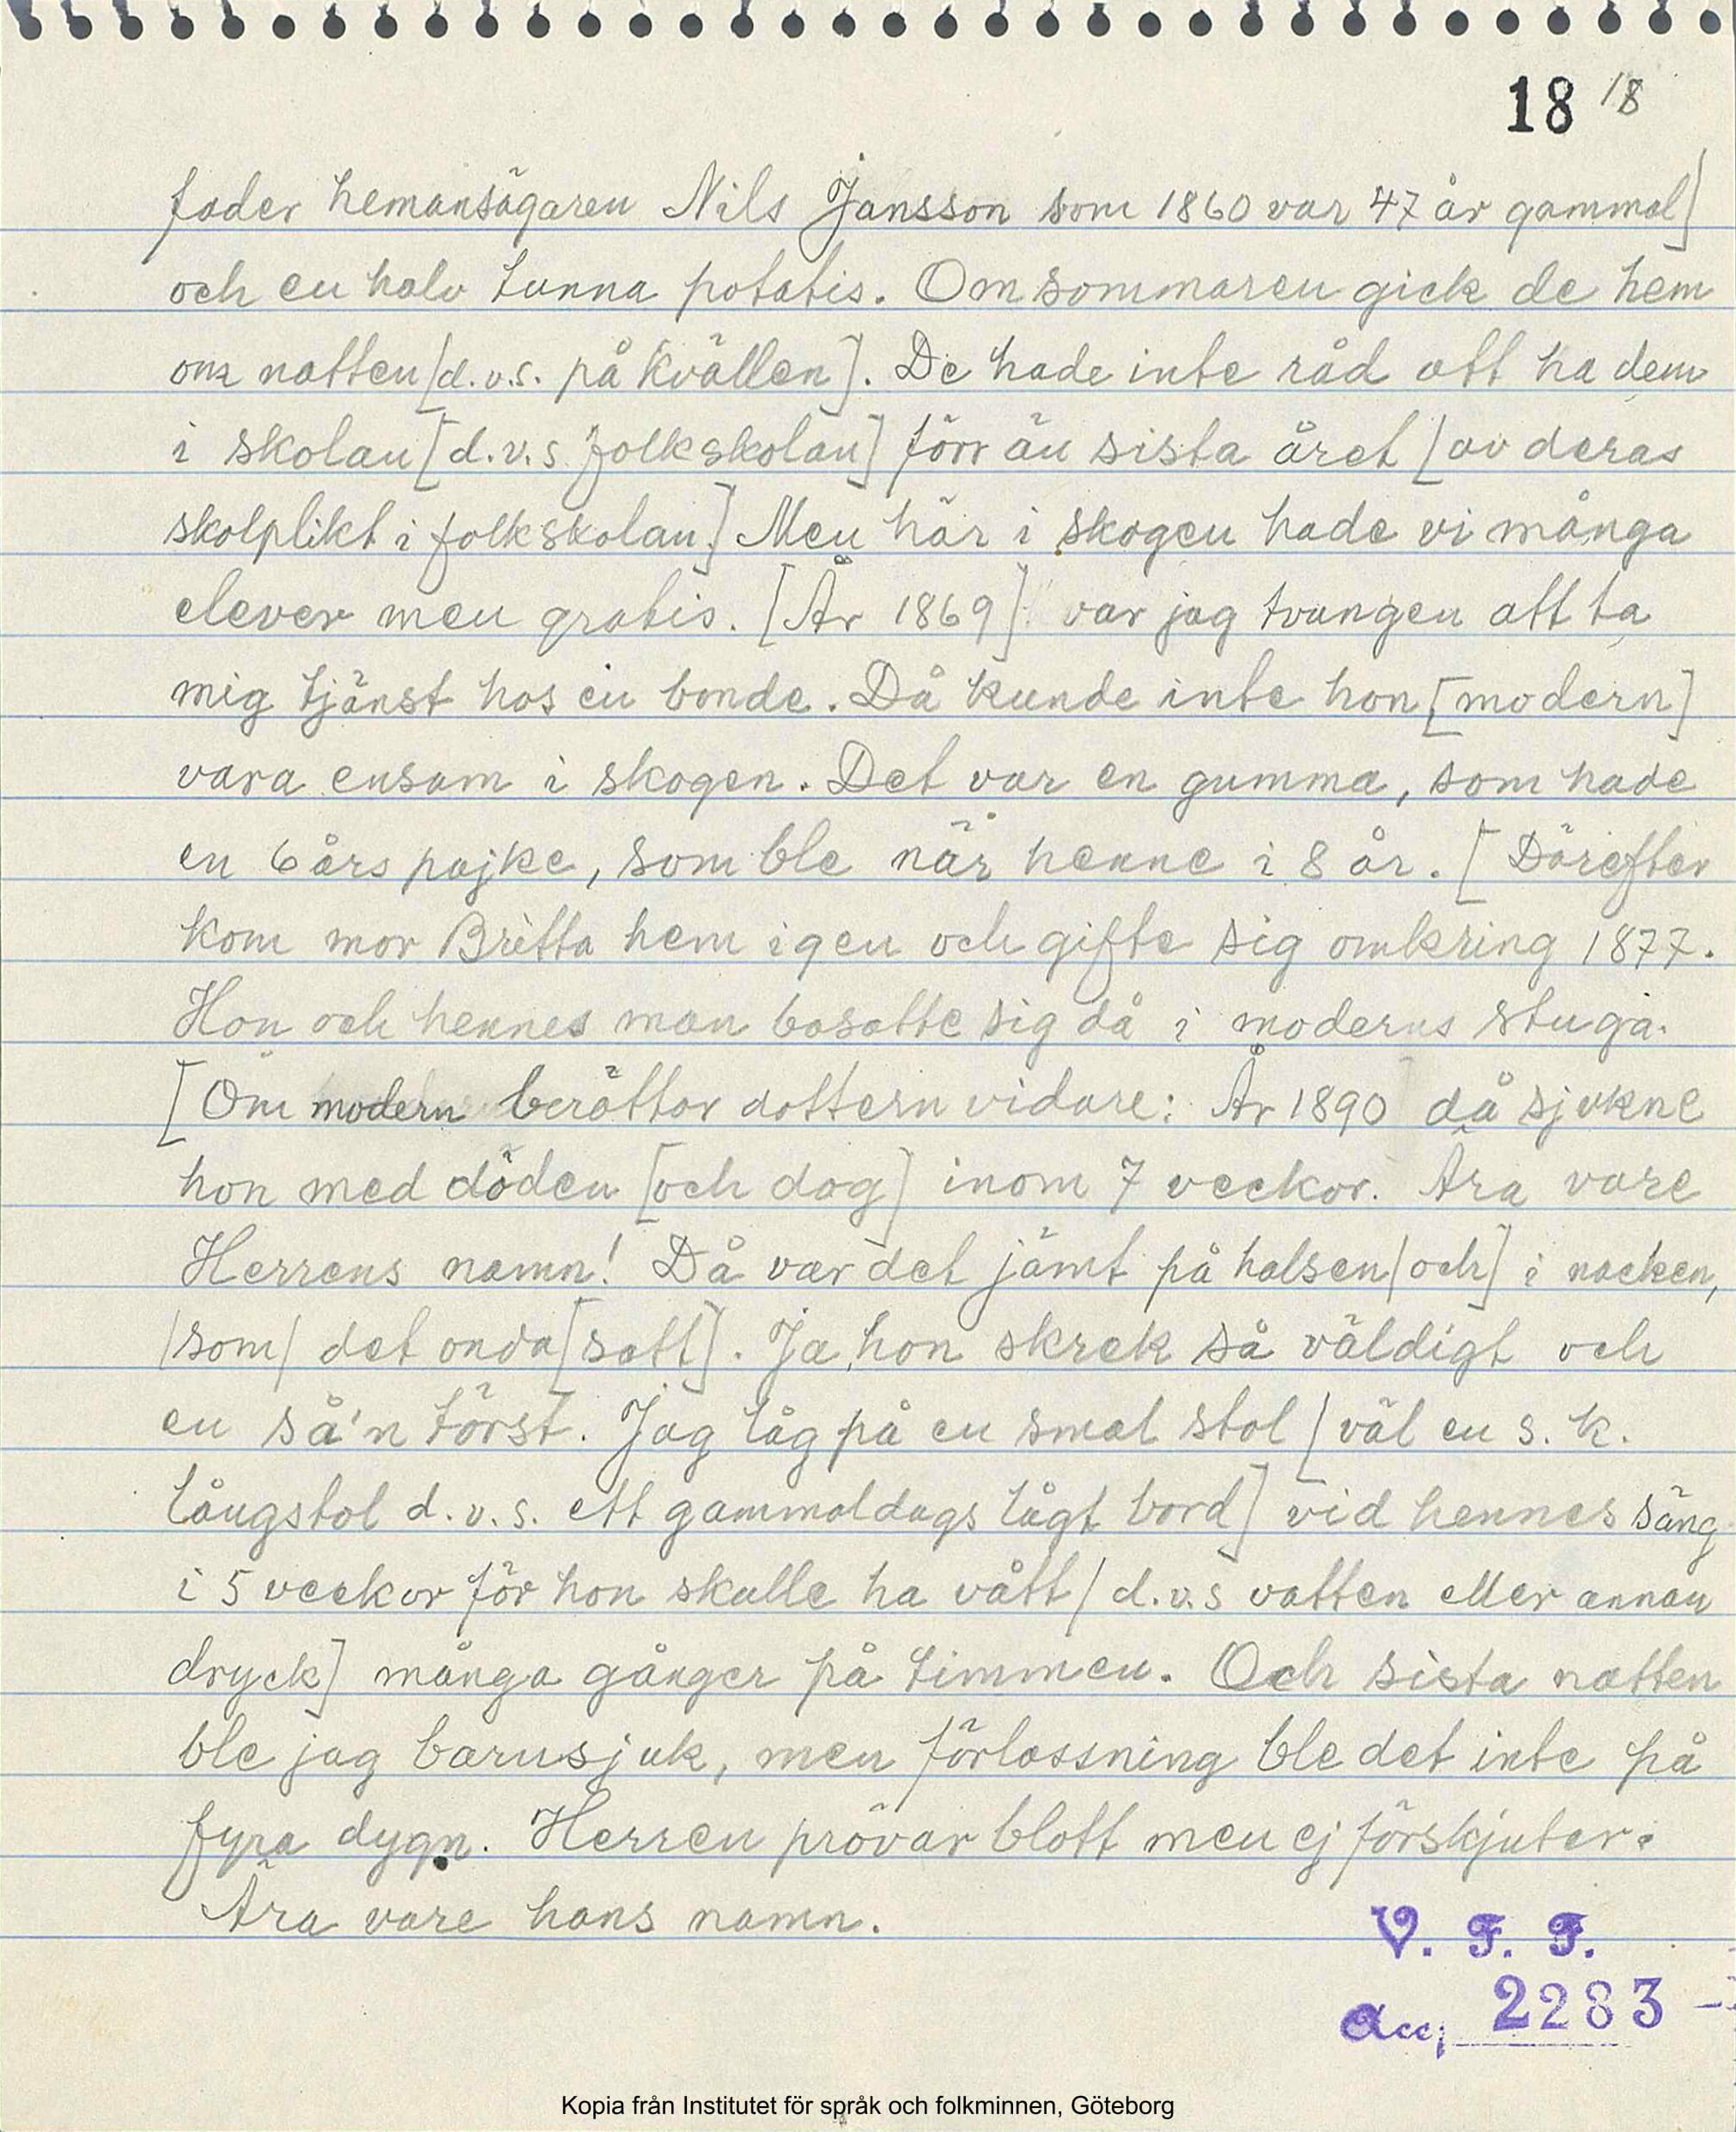 18 18
fader hemansägaren Nils Jansson som 1860 var 47 år gammal]
och en halv tunna potatis. Om sommaren gick de hem
om natten [d.v.s. på kvällen]. De hade inte råd att ha dem
i skolan [d.v.s folkskolan] förr än sista året [av deras
skolplikt i folkskolan] Men här i skogen hade vi många
elever men gratis. [År 1869] var jag tvungen att ta
mig tjänst hos en bonde. Då kunde inte hon [modern]
vara ensam i skogen. Det var en gumma, som hade
en 6 års pojke, som ble när henne i 8 år. [Därefter
kom mor Britta hem igen och gifte sig omkring 1877.
Hon och hennes man bosatte sig då i moderns stuga.
[Om modern berättar dottern vidare: År 1890 då sjukne
hon med döden [och dog] inom 7 veckor. Ära vare
Herrens namn! Då var det jämt på halsen [och] i nacken,
/som/ det onda [satt]. Ja, hon skrek så väldigt och
en så'n törst. Jag låg på en smal stol [väl en s.k.
långstol d.v.s. ett gammaldags lågt bord] vid hennes säng
i 5 veckor för hon skulle ha vått [d.v.s vatten eller annan
dryck] många gånger på timmen. Och sista natten
ble jag barnsjuk, men förlossning ble det inte på
fyra dygn. Herren prövar blott men ej förskjuter.
Ära vare hans namn.
V. F. F.
Acc; 2283
Kopia från Institutet för språk och folkminnen, Göteborg